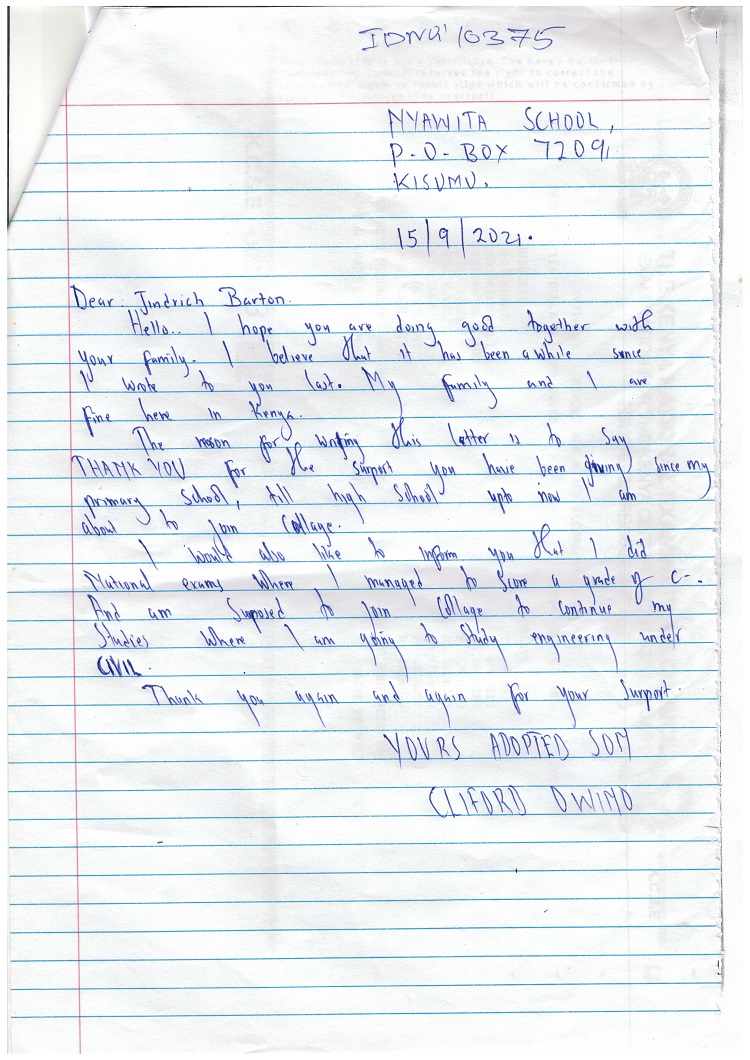 IDNO' 10375
NYAWITA SCHOOL,
P.O-BOX 7209,
KISUMU.
15/9/2021.
Dear: Jindrich Barton.
Hello.. I hope you are doing good together with
your family. I believe that it has been a while since
I wrote to you last. My family and I are
fine here in Kenya.
The reason for writing this letter is to say
THANK YOU for the surport you have been giving since my
primary school, till high school upto now I am
about to join collage.
I would also like to inform you that I did
National exams where I managed to score a grade of C-.
And am supposed to join collage to continue my
studies where I am going to study engineering under
CIVIL.
Thank you again and again for your surport.
YOURS ADOPTED SON
CLIFORD OWINO